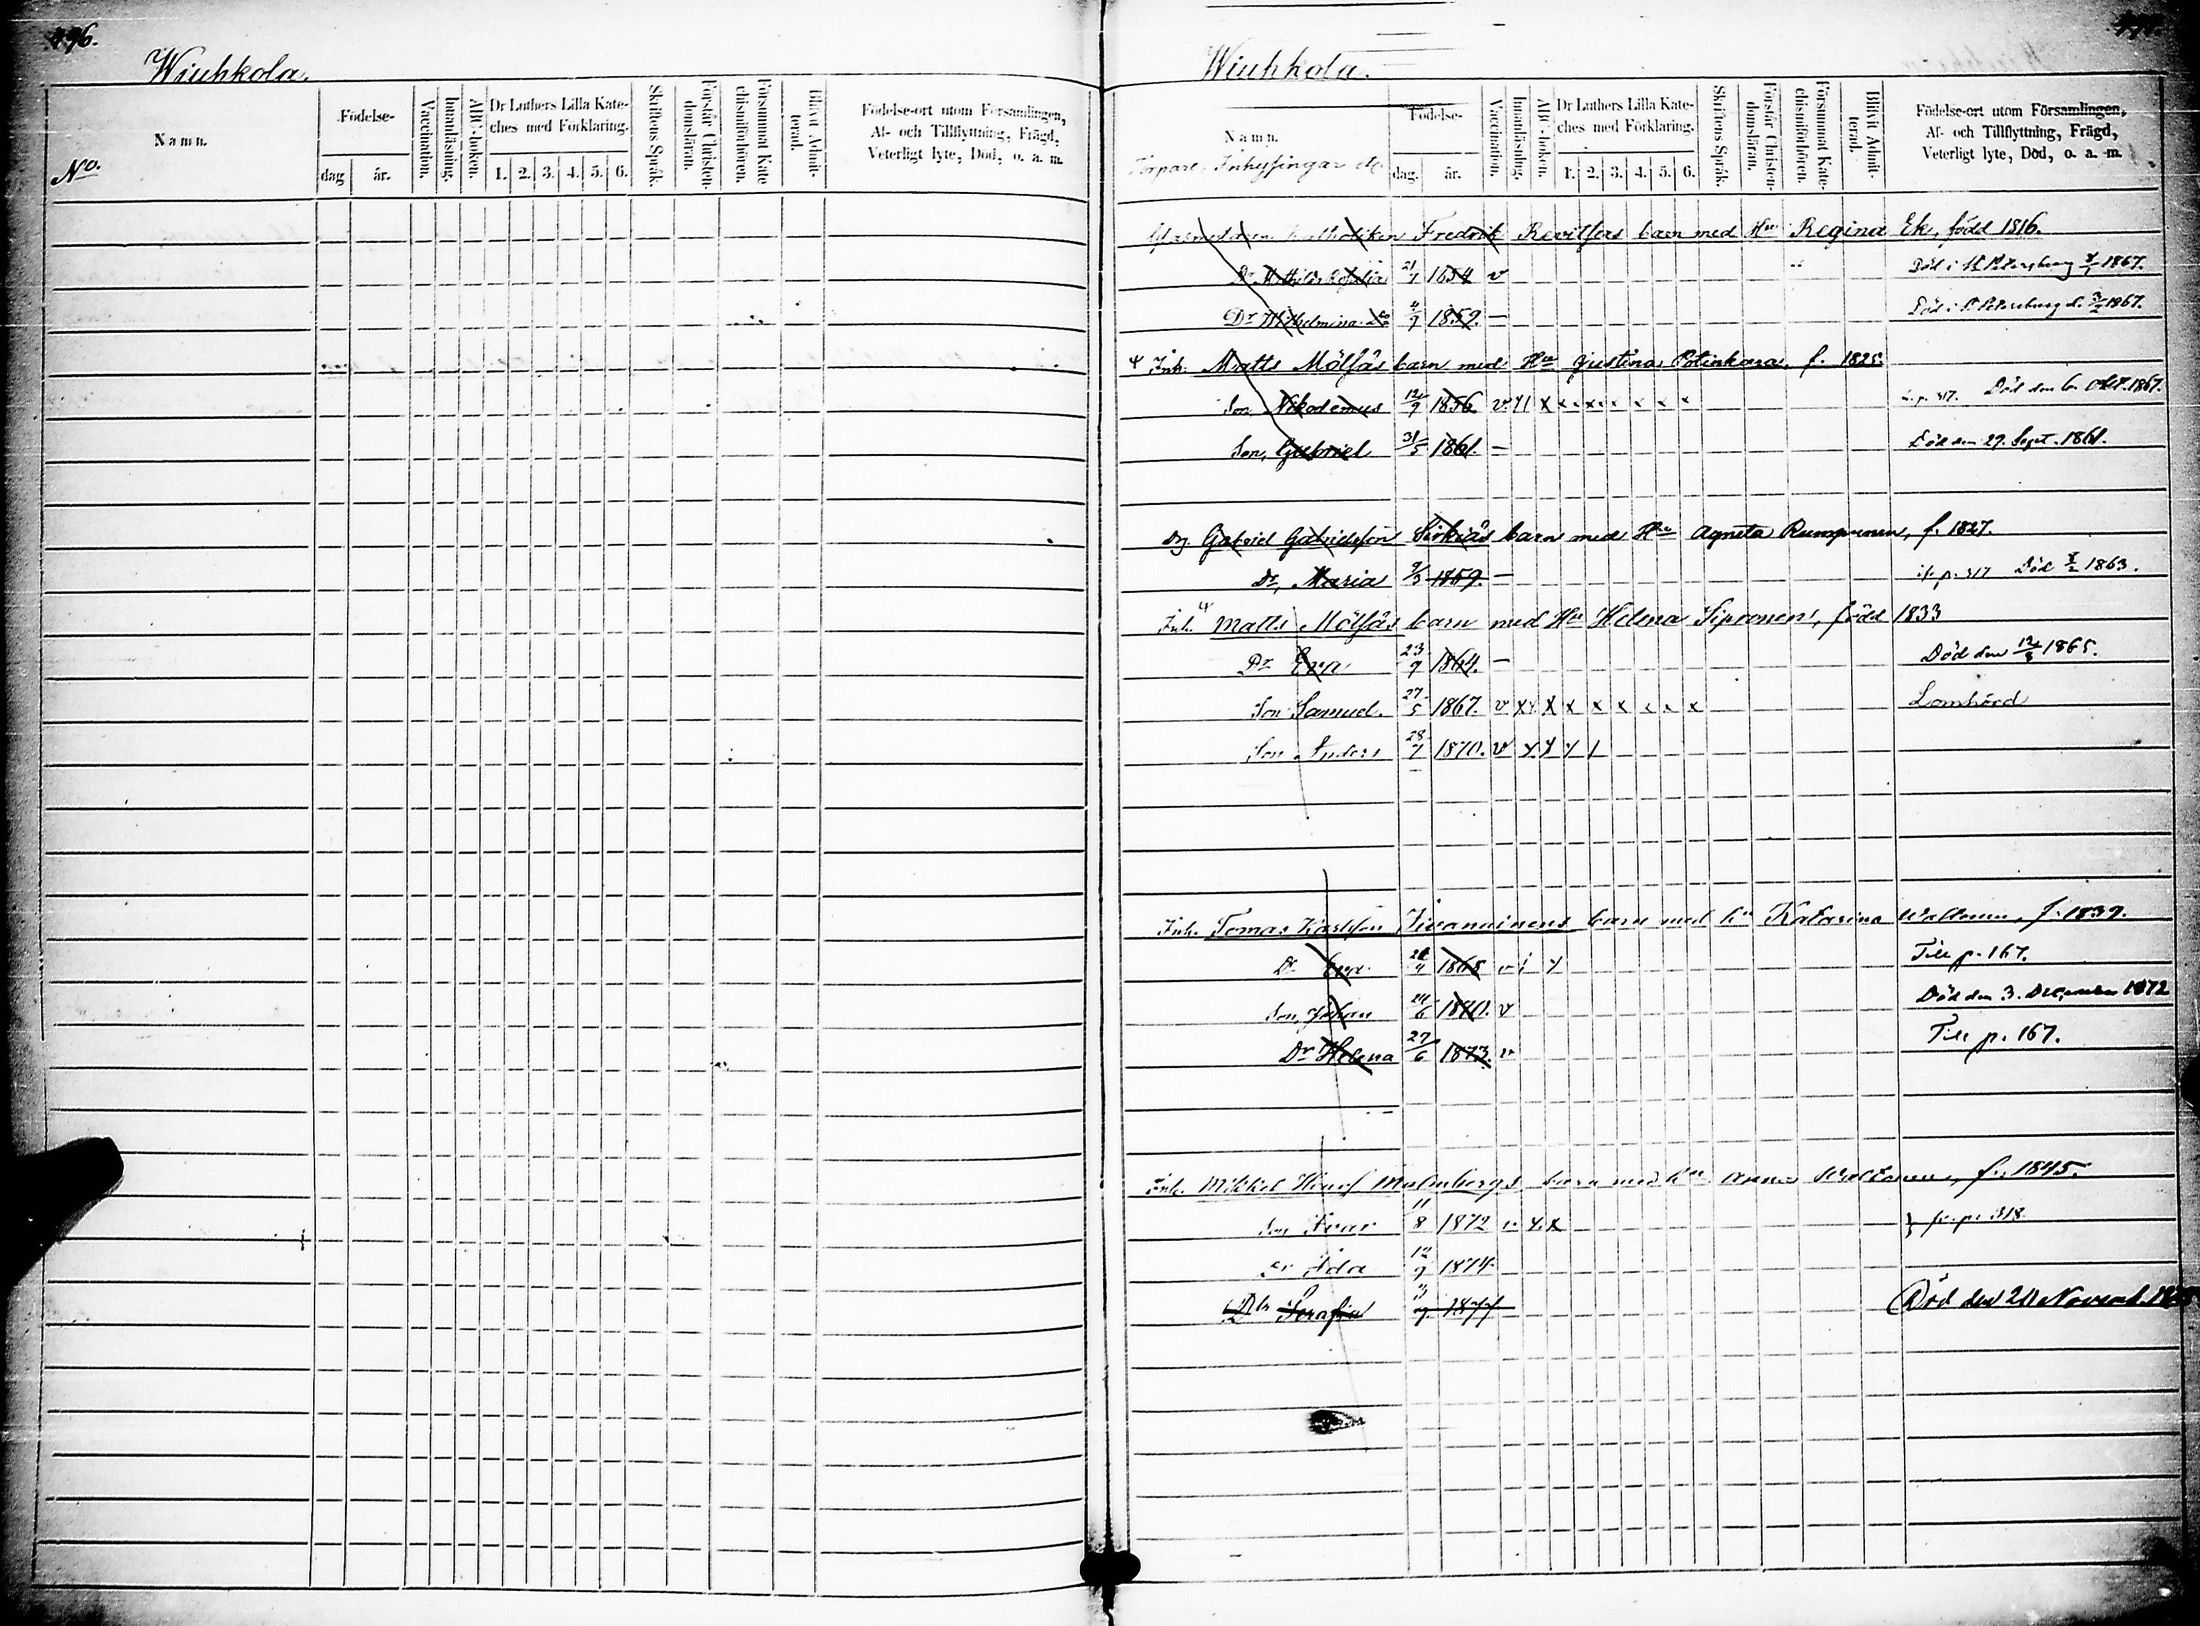 496.
Wiuhkola.
No.
Namn.
Födelse-
dag
år.
Vaccination.
Innanläsning.
ABC-boken.
Dr Luthers Lilla Kateches med Förklaring.
1. 2. 3. 4. 5. 6.
Skriftens Språk.
Förstår Christendomslärarn.
Försummat Kate chismiförhören.
Blivit Admitterad.
Födelse-ort utom Församlingen,
Af- och Tillflyttning, Frägd,
Veterligt lyte, Död, o. a. m.
Wiuhkola.
Namn.
Torpare, Inhysingar etc
Födelse-
dag.
år.
Vaccination.
Innanläsning.
ABC-boken.
Dr Luthers Lilla Kateches med Förklaring.
1. 2. 3. 4. 5. 6.
Skriftens Språk.
Förstår Christendomslärarn.
Försummat Katechismiförhören.
Blivit Admitterad.
Födelse-ort utom Församlingen,
Af- och Tillflyttning, Frägd,
Veterligt lyte, Död, o. a. m.
Fredrik barn med Hu Regina Ek, född 1816.
Dr 21/7 1854 v Död i St Petersburg 1867.
Dr Wilhelmina 1859. — Död i St Petersburg d. 1867.
Inh. Matts Mölsäs barn med Hu Justina Potinkara, f. 1825.
Son Nikodemus 12/9 1856 v x x x x x x x x Död den 6. Okt. 1867.
Son, Gabriel 31/5 1861. — Död den 29. Sept. 1861.
Gabriel Gabrielsson Sirkiäs barn med Hu Agneta Rumpunen, f. 1827.
Dr, Maria 9/3 1859. — p. 317 Död 1863.
Inh. Matts Mölsäs barn med Hu Helena Sipronen, född 1833
Dr Eva 23/9 1864. — Död den 12/8 1865.
Son Samuel. 27/5 1867. v x x x x x x x x x Lomhörd
Son Anders 28/7 1870. v x x x /
Inh. Tomas Karlsson barn med hu Katarina f. 1839.
Dr Eva 1868 v Till p. 167.
Son, Johan 24/6 1870. v Död den 3. December 1872
Dr Helena 27/6 1873. v Till p. 167.
Inh. Mikkel Malmbergs barn med hu Anna f. 1845.
Son Ivar 11/8 1872 v x x fr. p. 318
Dr Ida 12/9 1874.
Dtr Serafia 1877 Död den 20 Novemb.